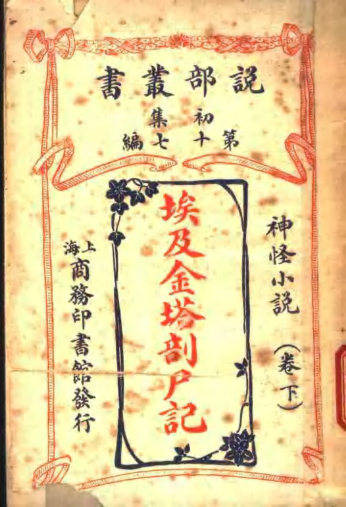 説部叢書
初集
第十七編
神怪小説
(卷下)
埃及金塔剖尸記
上海
商務印書館發行